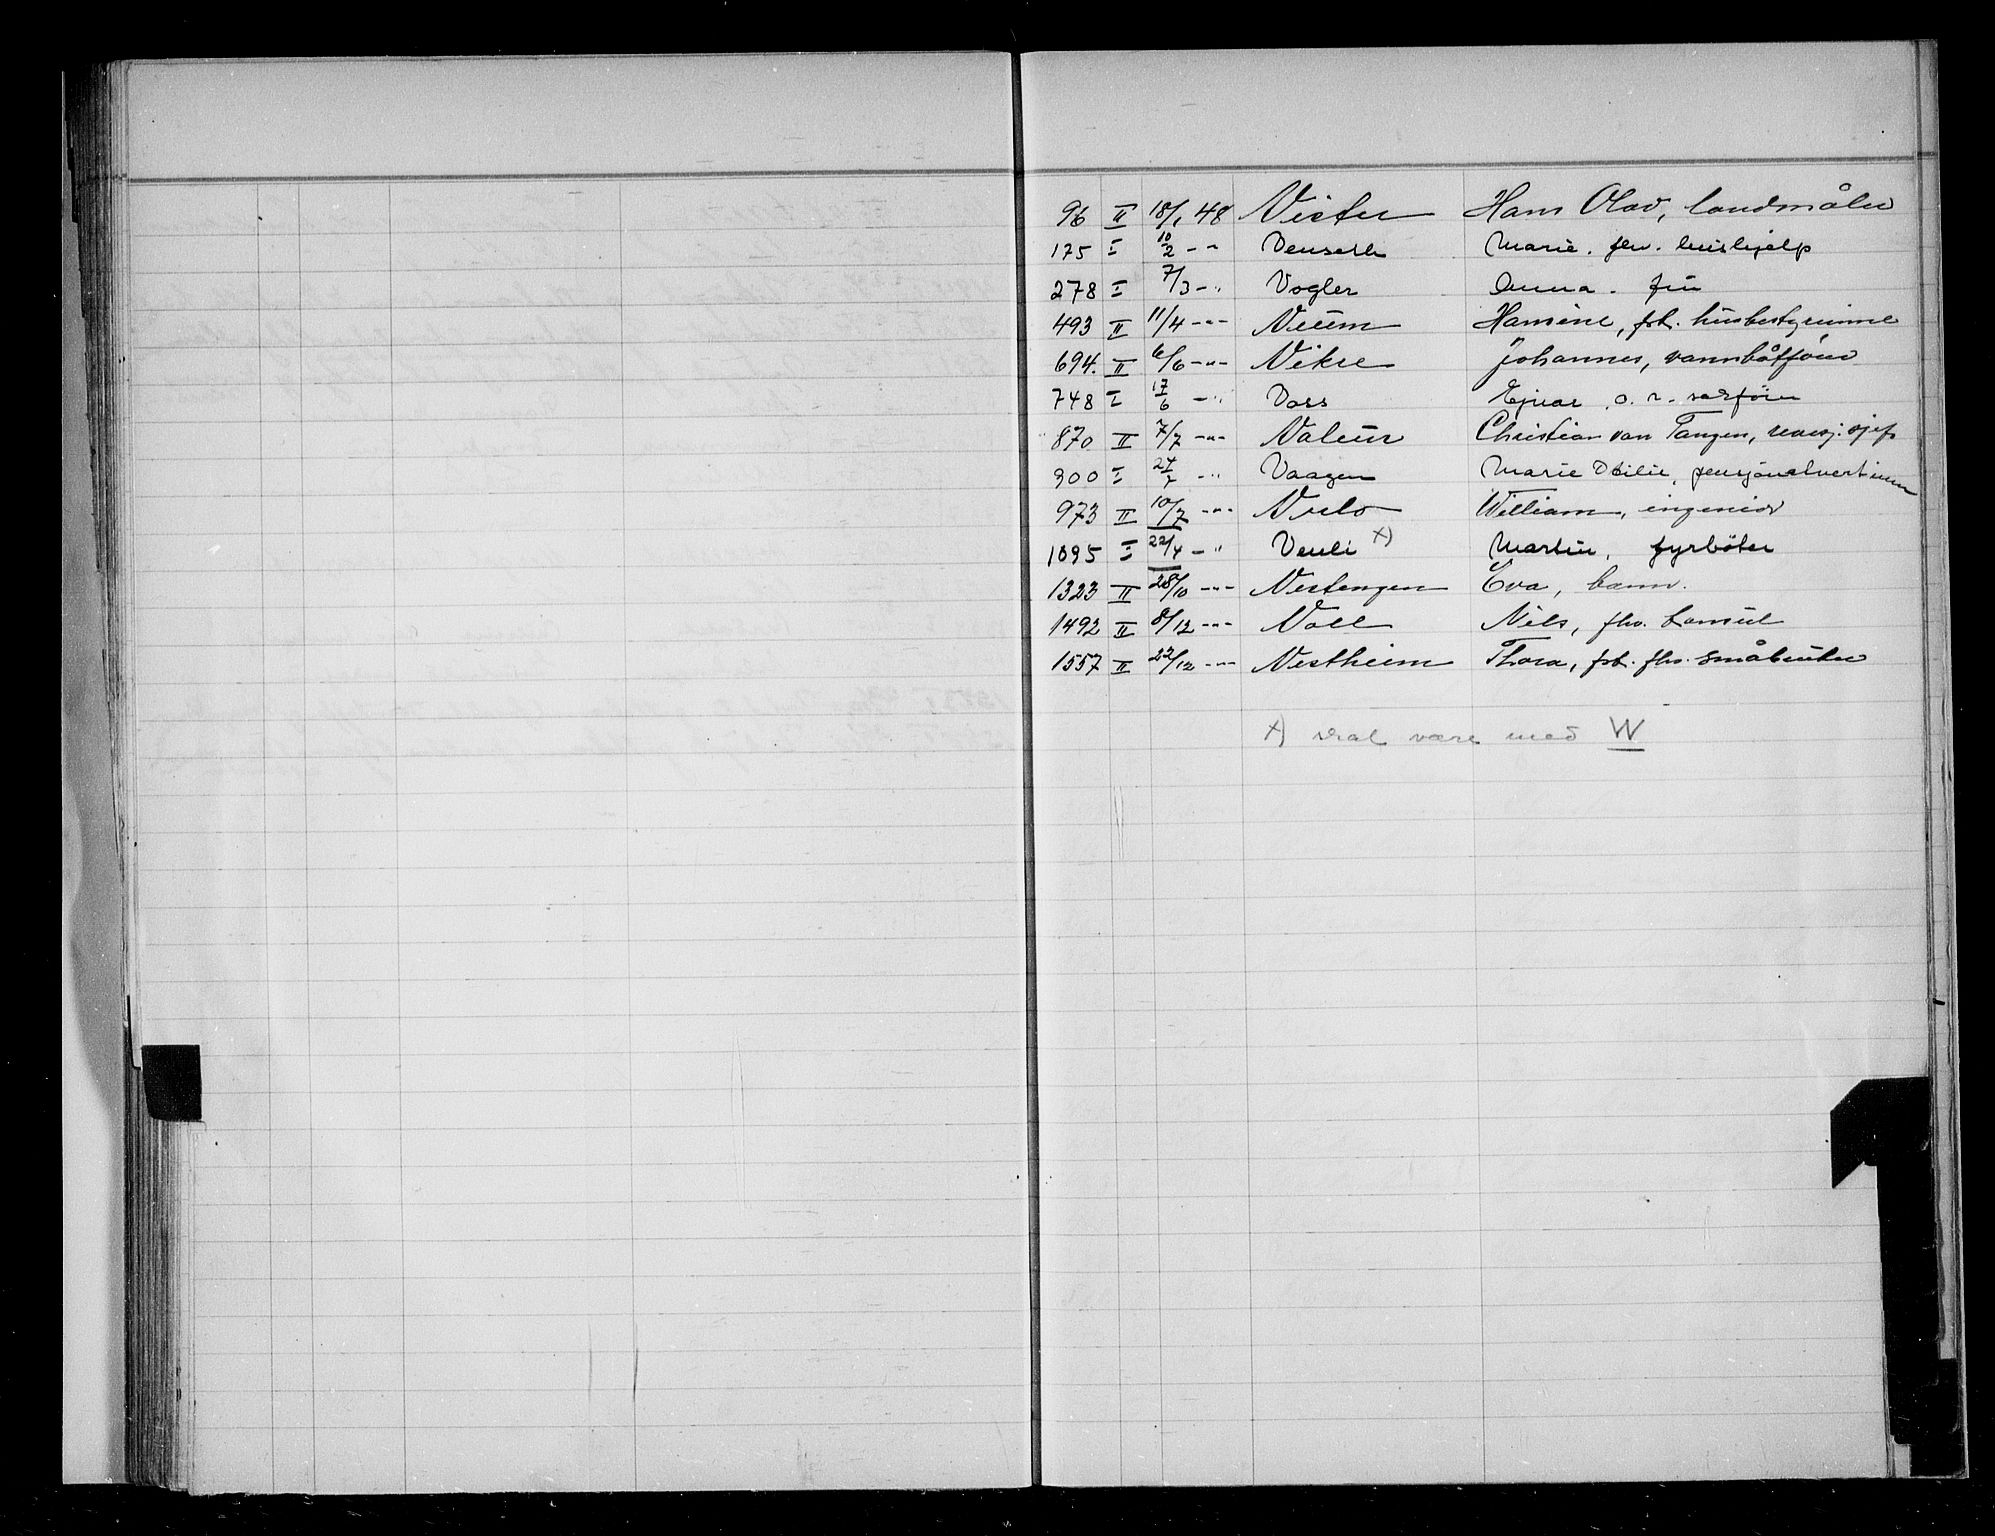 96 II 18/1 48 Vister Hans Olav, landmåler
175 I 10/2 -"- Marie. hushjelp
278 I 7/3 -"- Vogler Anna. frú
493 II 11/4 -"- Veum Hansine, fsk. husbestyrinne
694. II 6/6 -"- Vikse Johannes, vannbåtfører
748 I 17/6 -"- Voss Ejnar o.r. sakfører
870 II 7/7 -"- Valeur Christian van Tangen, revisj. sjef
900 I 24/7 -"- Vaagen Marie Otilie, pensjonatvertinne
973 II 10/7 -"- William, ingeniør
1095 I 22/4 -"- Venli x) Martin, fyrbøter
1323 II 28/10 -"- Vestengen Eva, barn.
1492 II 8/12 -"- Voll Nils, fhv. konsul
1557 II 22/12 -"- Vestheim Thora, fsk. fhv. småbruker
x) skal være med W